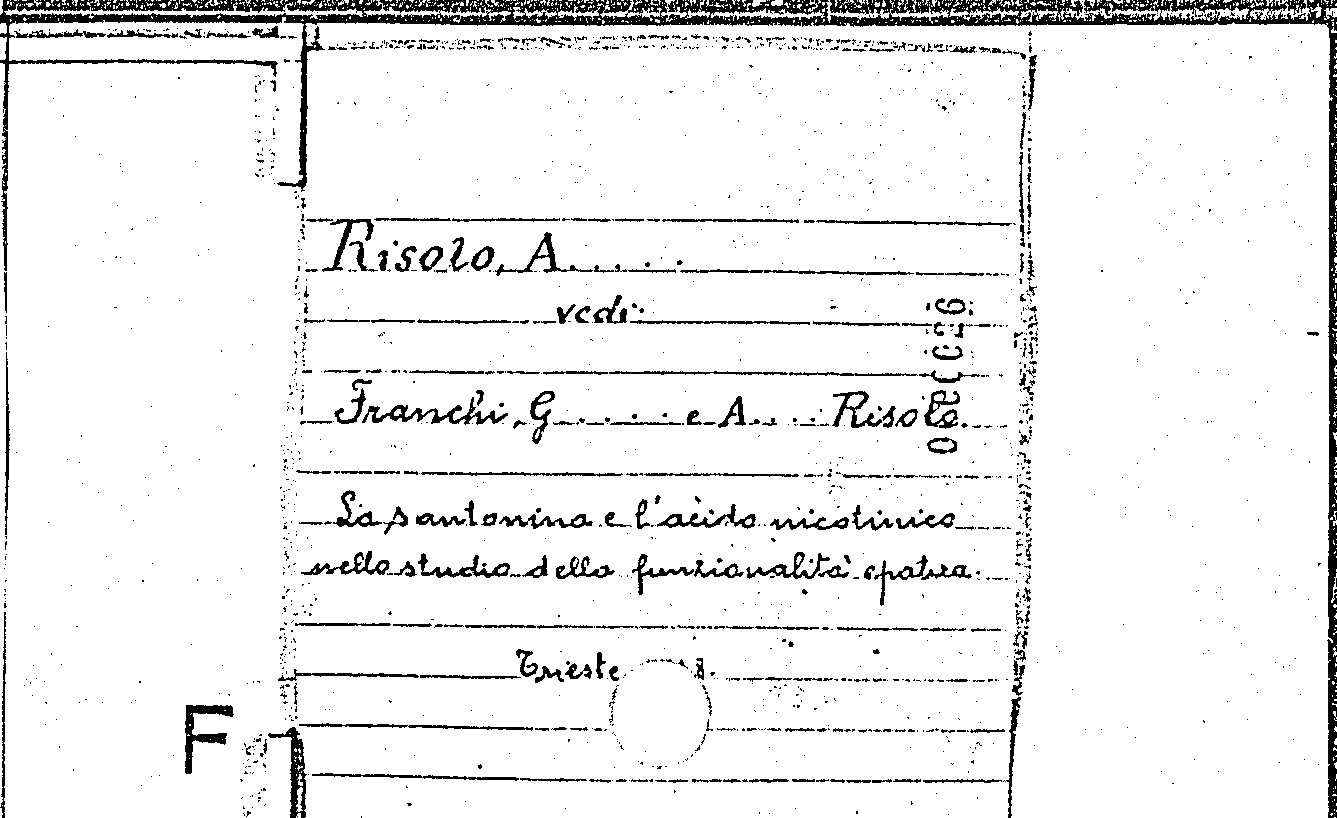 Risolo, A.....
vedi:
Franchi, G..... e A.... Risolo.
La santonina e l'acido nicotinico
nello studio della funzionalità epatica.
Trieste
F